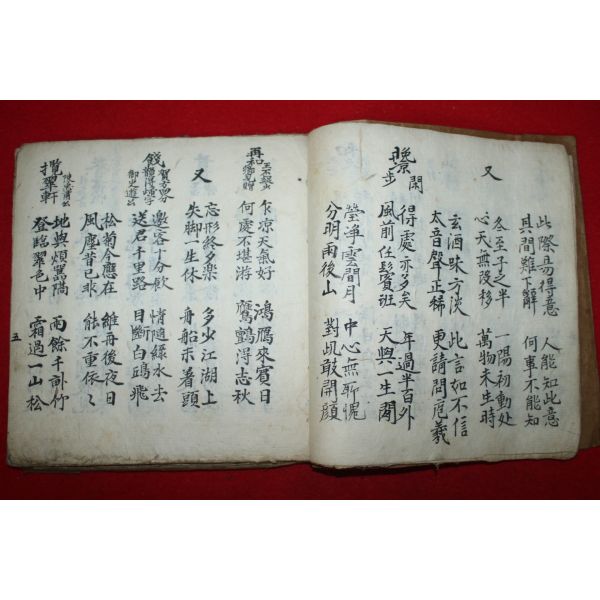 此際易得意 人能知此意
其間難下辭 何事不能知
又
冬至子之半 一陽初動處
心天無改移 萬物未生時
玄酒味方淡 此言如不信
太音聲正稀 更請問庖羲
閒步
得處亦多矣 年過半百外
風前任鬢班 天與一生閑
瑩淨雲間月 中心無所愧
分明雨後山 對此敢開顔
再和
乍凉天氣好 鴻鴈來賓日
何處不堪游 鷹鸇得志秋
又
忘形終多樂 多少江湖上
失脚一生休 舟船未着頭
餞
邀客十分飲 情隨綠水去
送君千里路 目斷白鷗飛
松菊今應在 維舟後夜日
風塵昔已非 能不重依〻
攬翠軒
地與煩囂隔 雨餘千畝竹
登臨翠色中 霜過一山松
五